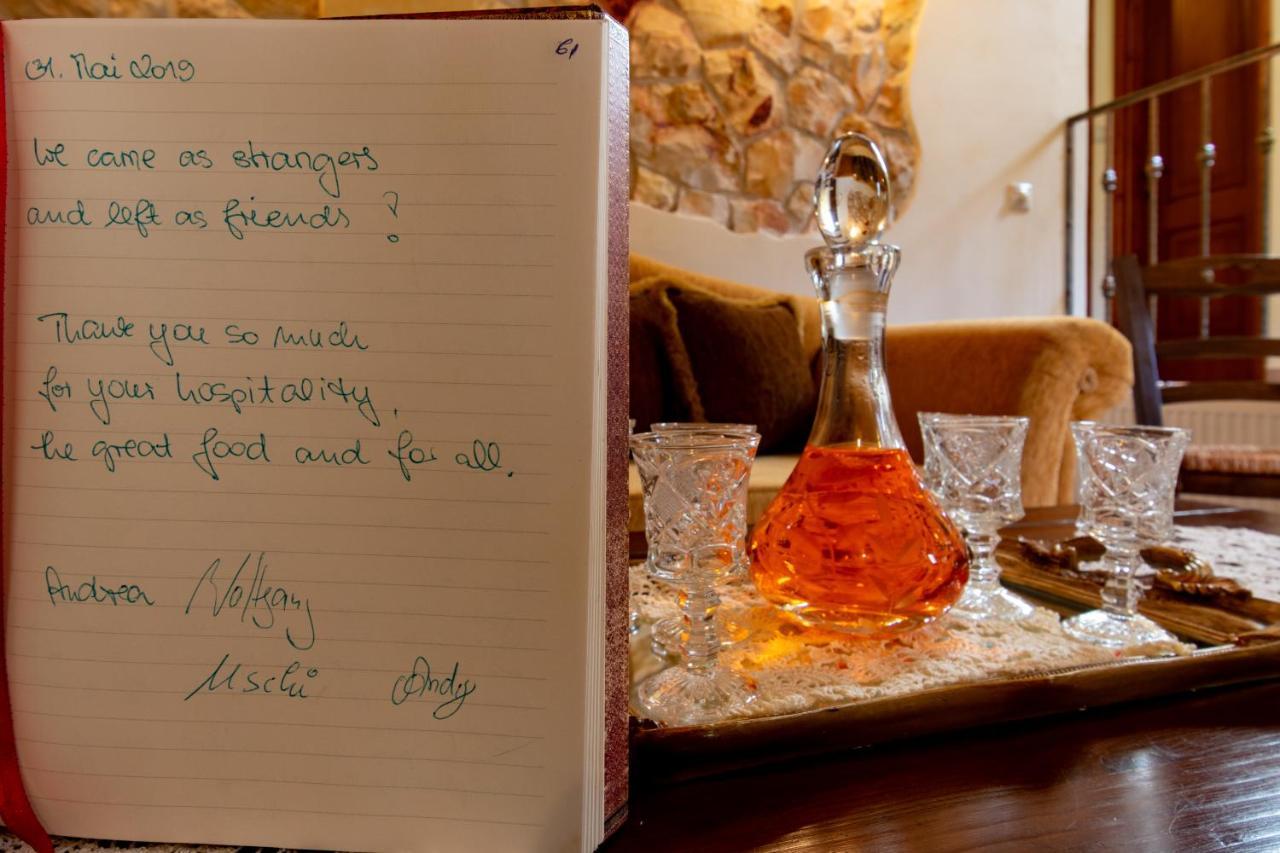 31. Mai 2019
61
We came as strangers
and left as friends !
Thank you so much
for your hospitality,
he great food and for all.
Andrea Wolfgang
Uschi Andy